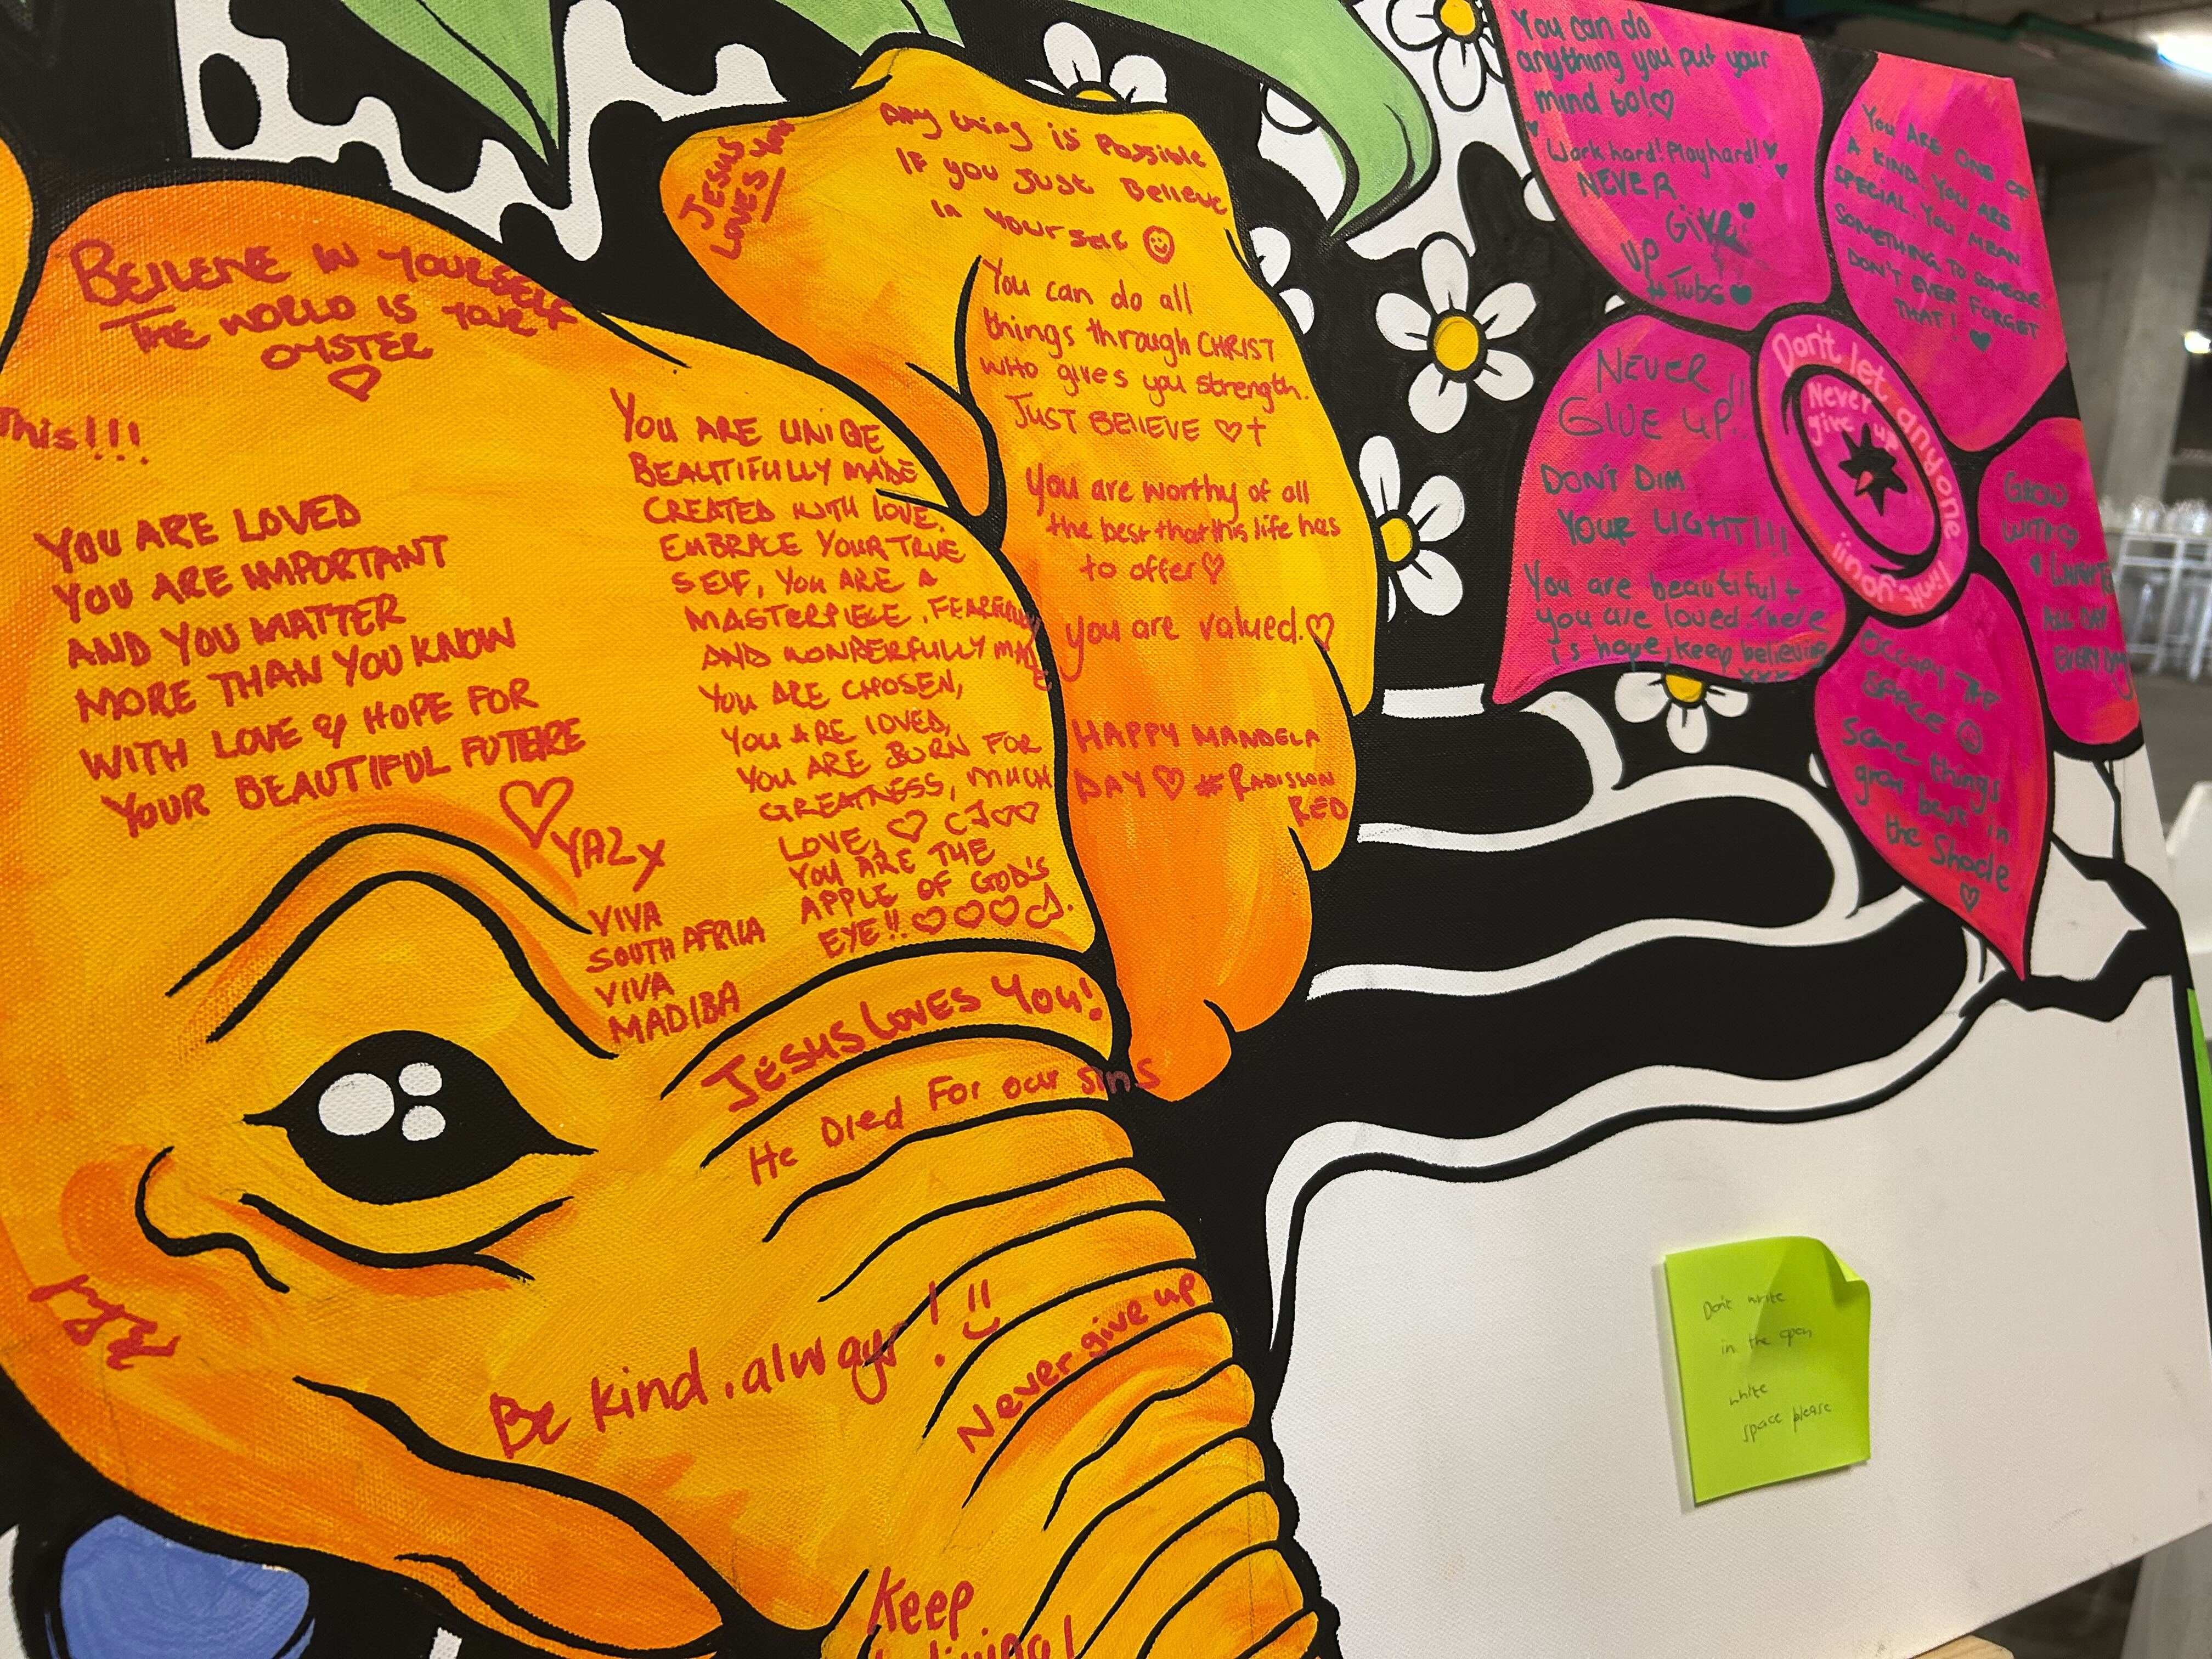 BELIEVE IN YOURSELF
THE WORLD IS YOUR
OYSTER
This!!!
YOU ARE LOVED
YOU ARE IMPORTANT
AND YOU MATTER
MORE THAN YOU KNOW
WITH LOVE & HOPE FOR
YOUR BEAUTIFUL FUTURE
YAZY
VIVA
SOUTH AFRICA
VIVA
MADIBA
YOU ARE UNIQE
BEAUTIFULLY MADE
CREATED WITH LOVE,
EMBRACE YOUR TRUE
SELF, YOU ARE A
MASTERPIECE. FEARFULLY
AND WONDERFULLY MADE
YOU ARE CHOSEN,
YOU ARE LOVED,
YOU ARE BORN FOR
GREATNESS, MUCH
LOVE, ♡ ♡♡
YOU ARE THE
APPLE OF GOD'S
EYE!! ♡♡♡
JESUS
LOVES YOU
Any thing is Possible
If you Just Believe
In Yourself ☺
You can do all
things through CHRIST
who gives you strength.
JUST BELIEVE ♡✝
You are worthy of all
the best that this life has
to offer♡
you are valued.♡
HAPPY MANDELA
DAY ♡ #RADISSON
RED
JESUS LOVES YOU!
He Died For our sins
Be kind. always!
Never give up
Keep
You can do
anything you put your
mind to!♡
Work hard! Play hard!♥
NEVER
Give
UP
#Tubs♥
YOU ARE ONE OF
A KIND. YOU ARE
SPECIAL. YOU MEAN
SOMETHING TO SOMEONE.
DON'T EVER FORGET
THAT! ♥
NEVER
GIVE UP!!
DON'T DIM
YOUR LIGHT!!!
You are beautiful +
you are loved. There
is hope, keep believing
xxx
Don't let anyone limit you!!
Never
give up
GROW
ALL DAY
EVERYDAY
OCCUPY THE
SPACE ☺
Some things
grow best in
the Shade
♡
Don't write
in the open
white
space please